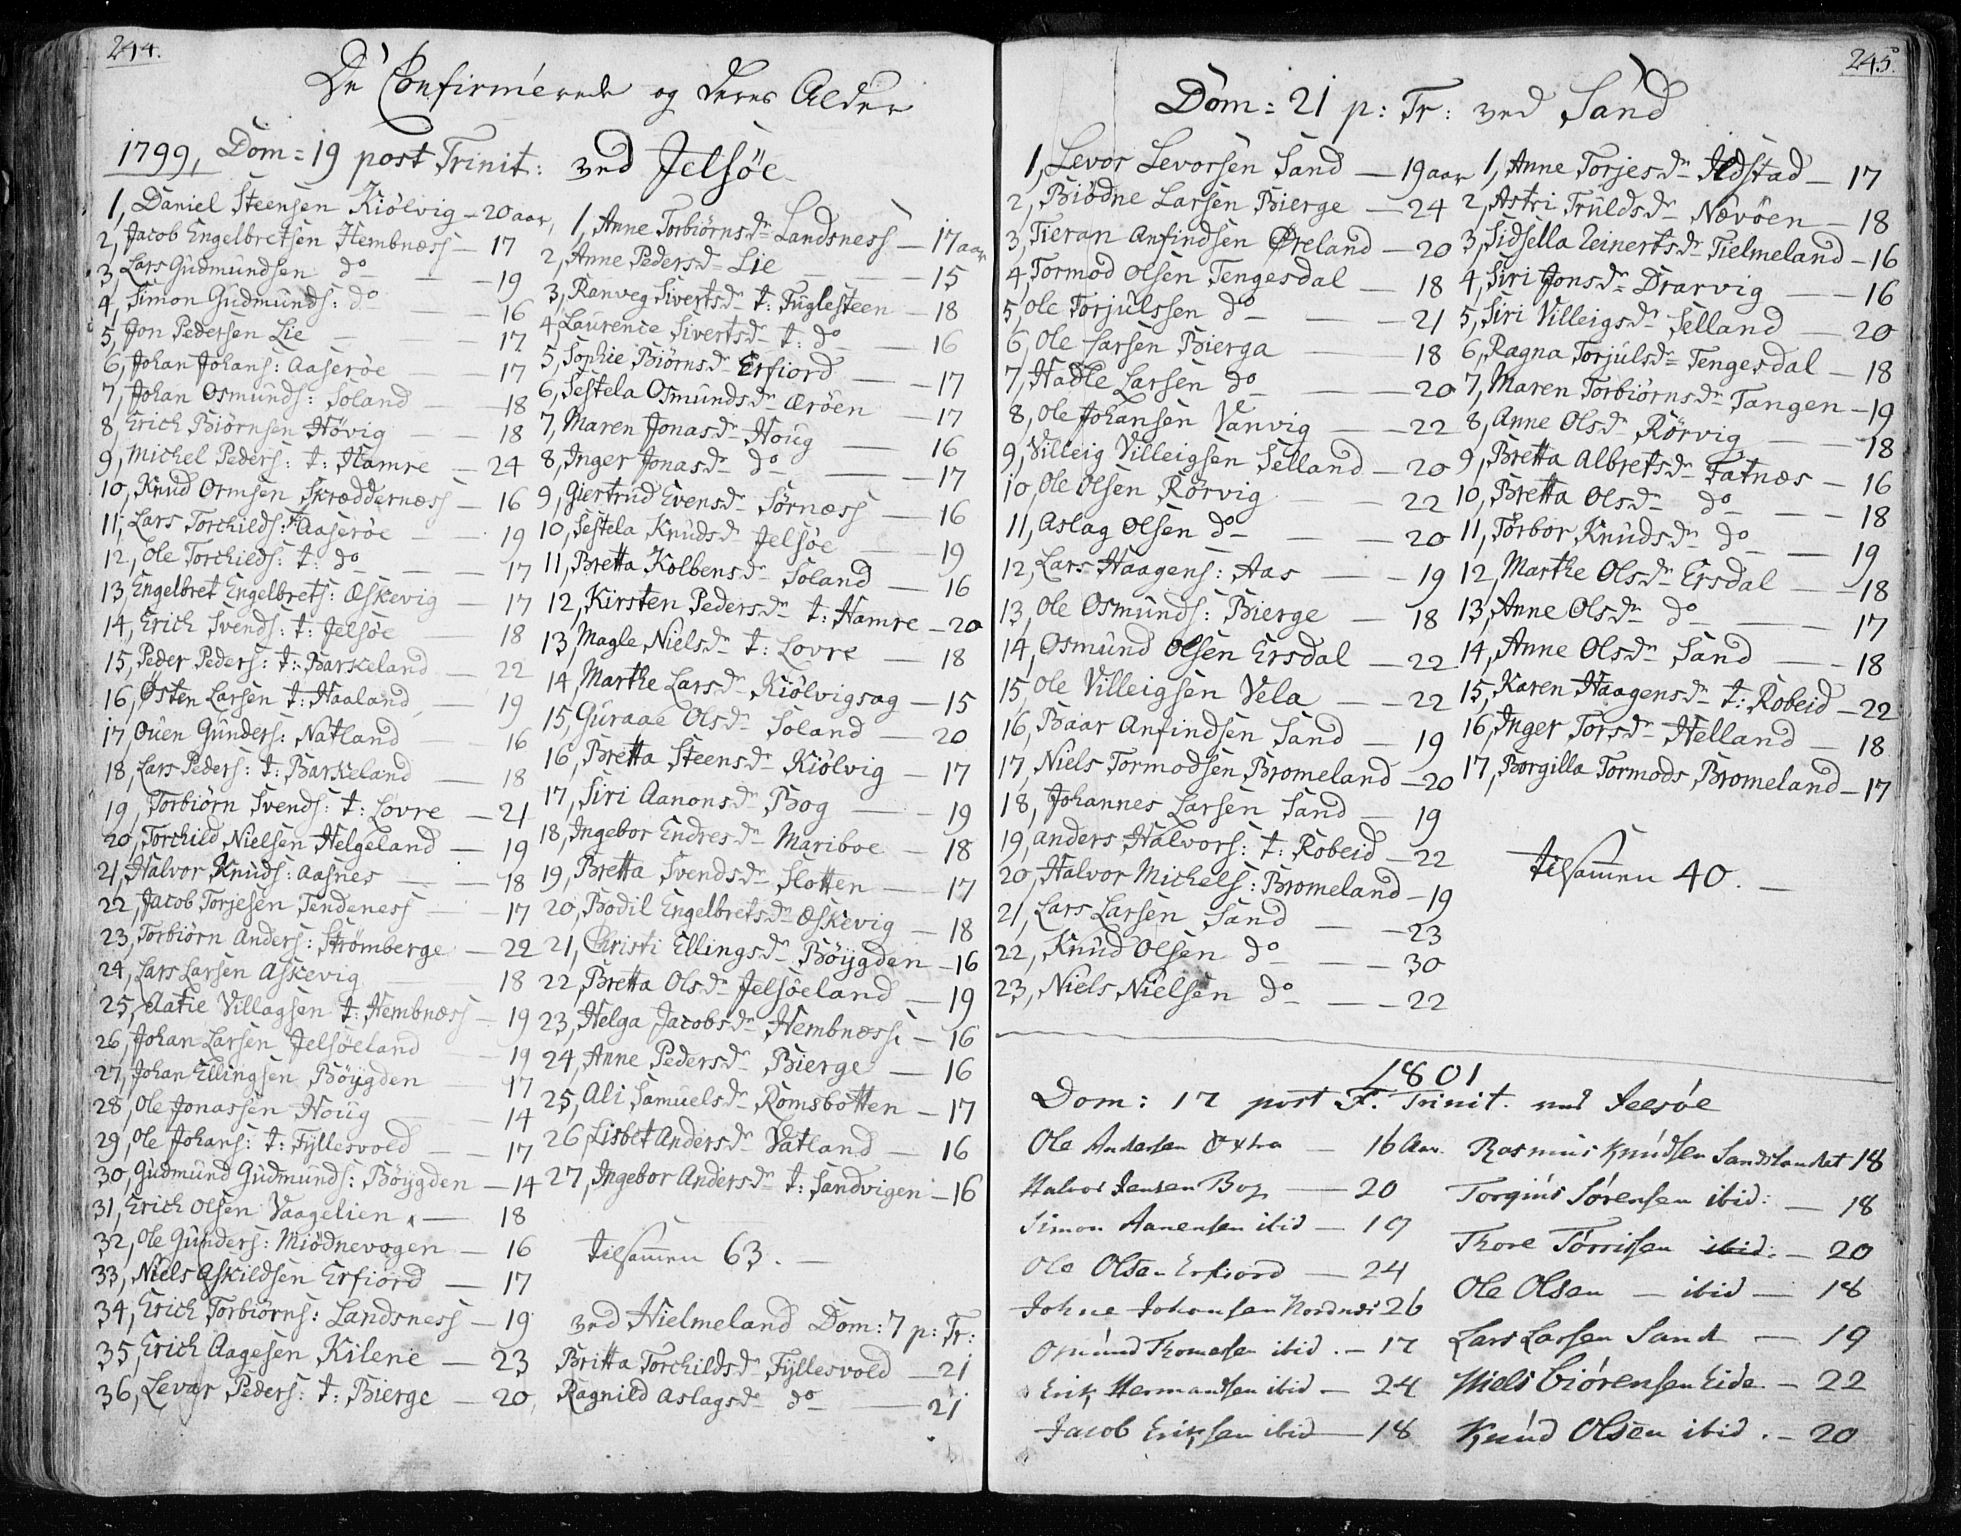 244.
De Confirmerede og deres Alder
1799, Dom = 19 post Trinit: ved Jelsöe
1, Daniel Steensen Kiölvig - 20 aar,
2, Jacob Engelbretsen Hembnæss - 17
3, Lars Gudmundsen do - 19
4, Simon Gudmunds: do - 16
5, Jon Pedersen Lie - 17
6, Johan Johans: Aaseröe - 17
7, Johan Osmunds: Soland - 18
8, Erich Biörnsen Hövig - 18
9, Michel Peders: t: Hamre - 24
10, Knud Ormsen Skræddernæss - 16
11, Lars Torchilds: t: Aaseröe - 19
12, Ole Torchilds: t: do - 17
13, Engelbret Engelbrets: Æskevig - 17
14, Erich Svends: t: Jelsöe - 18
15, Peder Peders: t: Barkeland - 22
16, Østen Larsen t: Haaland - 19
17, Ouen Gunders: Natland - 16
18, Lars Peders: t: Barkeland - 18
19, Torbiörn Svends: t: Lovre - 21
20, Torchild Nielsen Helgeland - 19
21, Halvor Knuds: Aasnes - 18
22, Jacob Torjesen Tendeness - 17
23, Torbiörn Anders: Strömberge - 22
24, Lars Larsen Askevig - 18
25, Aatie Villagsen t: Hembnæss - 19
26, Johan Larsen Jelsöeland - 19
27, Johan Ellingsen Böygden - 17
28, Ole Jonassen Houg - 14
29, Ole Johans: t: Fyllesvold - 17
30, Gudmund Gudmunds: Böygden - 14
31, Erich Olsen Vaagelien - 18
32, Ole Gunders: Miödnevogen - 16
33, Niels Askildsen Erfiord - 17
34, Erich Torbiörns: Landsness - 19
35, Erich Aagesen Kilene - 23
36, Levar Peders: t: Bierge - 20,
1, Anne Torbiörns dr Landsness - 17 aar
2, Anne Peders dr Lie - 15
3, Ranveg Siverts dr t: Fuglesteen - 18
4, Laurence Siverts dr t: do - 16
5, Sophie Biörns dr Erfiord - 17
6, Sestela Osmunds dr Æröen - 17
7, Maren Jonas dr Houg - 16
8, Inger Jonas dr do - 17
9, Giertrud Evens dr Sörnæss - 16
10, Sestela Knuds dr Jelsöe - 19
11, Bretta Kolbens dr Soland - 16
12, Kirsten Peders dr t: Hamre - 20
13, Magle Niels dr t: Lovre - 18
14, Marthe Lars dr Kiölvigsag - 15
15, Guraae Ols dr Soland - 20
16, Bretta Steens dr Kiölvig - 17
17, Siri Aanons dr Bog - 19
18, Ingebor Endres dr Mariboe - 18
19, Bretta Svends dr Slotten - 17
20, Bodil Engelbrets dr Æskevig - 18
21, Christi Ellings dr Böygden - 16
22, Bretta Ols dr Jelsöeland - 19
23, Helga Jacobs dr Hembnæss - 16
24, Anne Peders dr Bierge - 16
25, Ali Samuels dr Romsbotten - 17
26, Lisbet Anders dr Vatland - 16
27, Ingebor Anders dr t: Sandvigen - 16
tilsammen 63. -
ved Hielmeland Dom: 7 p: Tr:
Britta Torchilds dr Fyllesvold - 21
Ragnild Aslags dr do - 21
245.
Dom = 21 p: Tr: ved Sand
1, Levor Levorsen Sand - 19 aar
2, Biödne Larsen Bierge - 24
3, Tieran Anfindsen Øreland - 20
4, Tormod Olsen Tengesdal - 18
5, Ole Torjulssen do - 21
6, Ole Larsen Bierga - 18
7, Hadle Larsen do - 20
8, Ole Johansen Vanvig - 22
9, Villeig Villeigsen Selland - 20
10, Ole Olsen Rörvig - 22
11, Aslag Olsen do - 20
12, Lars Haagens: Aas - 19
13, Ole Osmunds: Bierge - 18
14, Osmund Olsen Ersdal - 22
15, Ole Villeigsen Vela - 22
16, Baar Anfindsen Sand - 19
17, Niels Tormodsen Bromeland - 20
18, Johannes Larsen Sand - 19
19, Anders Halvors: t: Robeid - 22
20, Halvor Michels: Bromeland - 19
21, Lars Larsen Sand - 23
22, Knud Olsen do - 30
23, Niels Nielsen do - 22
1, Anne Torjes dr Idstad - 17
2, Astri Trulds dr Nævöen - 18
3, Sidsella Zeinerts dr Tielmeland - 16
4, Siri Jons dr Drarvig - 16
5, Siri Villeigs dr Selland - 20
6, Ragna Torjuls dr Tengesdal - 18
7, Maren Torbiörns dr Tangen - 19
8, Anne Ols dr Rörvig - 18
9, Bretta Albrets dr Fatnæs - 16
10, Bretta Ols dr do - 18
11, Torbor Knuds dr do - 19
12, Marthe Ols dr Ersdal - 18
13, Anne Ols dr do - 17
14, Anne Ols dr Sand - 18
15, Karen Haagens dr t: Robeid - 22
16, Inger Tors dr Helland - 18
17, Borgilla Tormods Bromeland - 17
tilsammen 40. -
1801
Dom: 17 post F. Trinit. ved Jelsöe
Ole Andersen - 16 Aar.
Halvor Jensen Bog - 20
Simon Aanensen ibid - 19
Ole Olsen Erfiord - 24
Johne Johansen Nordnæs 26
Osmund Thomesen ibid. - 17
Erik Hermandsen ibid - 24
Jacob Eriksen ibid - 18
Rasmus Knudsen Sandslandet 18
Torgius Sörensen ibid: - 18
Thore Törrissen ibid: - 20
Ole Olsen - ibid - 18
Lars Larsen Sand - 19
Niels Biörensen Eide - 22
Knud Olsen ibid. - 20